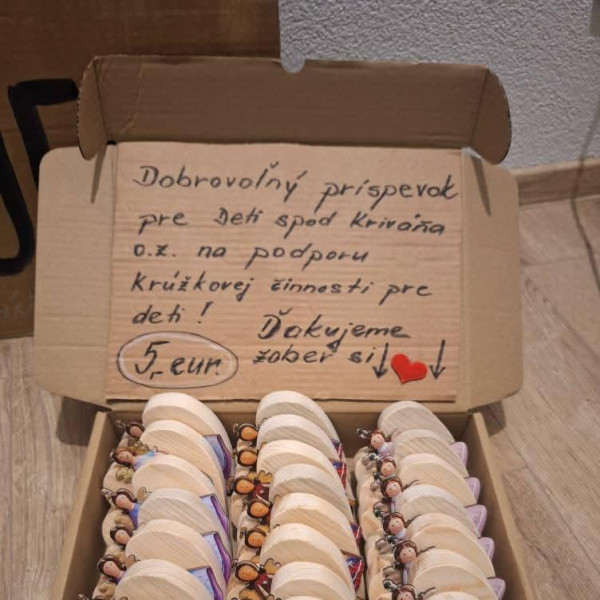 Dobrovoľný príspevok
pre Deti spod Kriváňa
o.z. na podporu
Krúžkovej činnosti pre
deti!
Ďakujeme
5,- eur. zober si